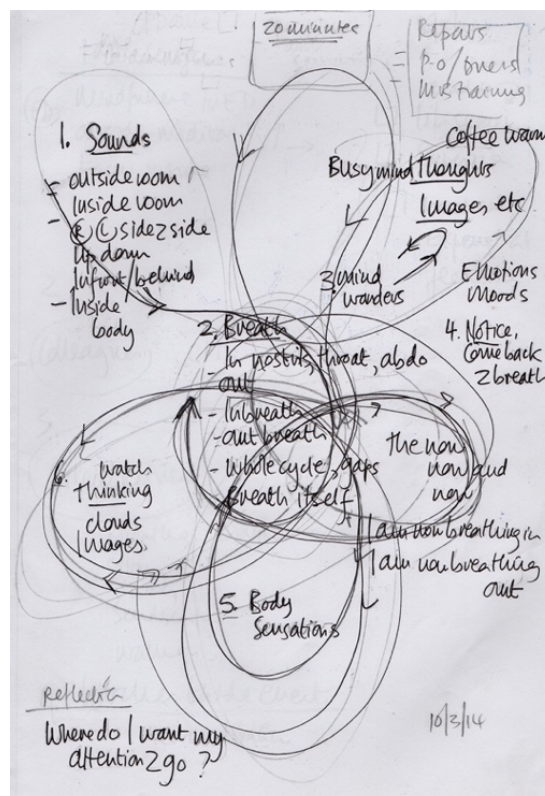 20 minutes
Repairs
1. Sounds
- outside room
Inside room
- R L side 2 side
Up down
Infront/behind
- Inside
body
Busy mind Thoughts
Images etc
3. mind
wanders
Emotions
Moods
4. Notice,
Come back
2 breath
2. Breath
- In nostrils, throat, abdo
out
- Inbreath
- out breath
- whole cycle, gaps
Breath itself
the now
now and
now
I am now breathing in
I am now breathing
out
6. watch
Thinking
clouds
Images
5. Body
Sensations
Reflection
Where do I want my
attention 2 go ?
10/3/14